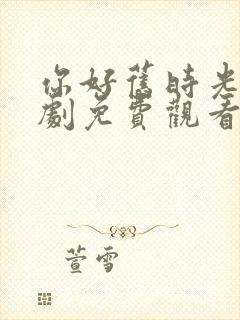 你好舊時光
劇免費觀看
萱雪